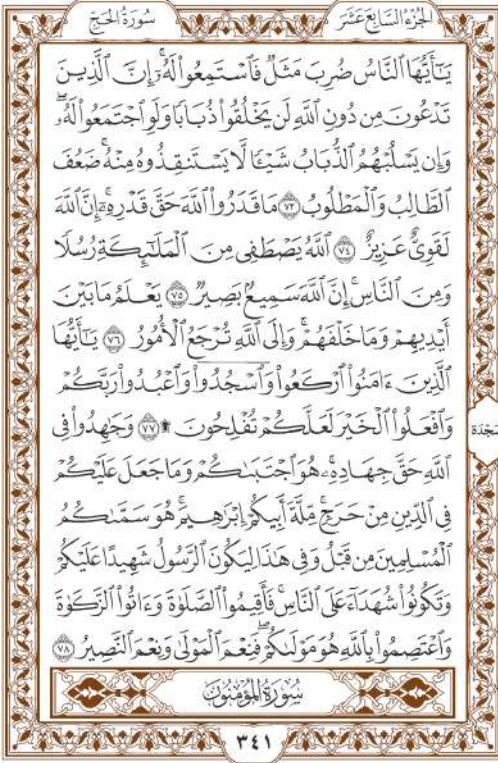 الجزء السابع عشر
سورة الحج
يَـٰٓأَيُّهَا ٱلنَّاسُ ضُرِبَ مَثَلٌ فَٱسْتَمِعُوا۟ لَهُۥٓ ۚ إِنَّ ٱلَّذِينَ
تَدْعُونَ مِن دُونِ ٱللَّهِ لَن يَخْلُقُوا۟ ذُبَابًا وَلَوِ ٱجْتَمَعُوا۟ لَهُۥ ۖ
وَإِن يَسْلُبْهُمُ ٱلذُّبَابُ شَيْـًٔا لَّا يَسْتَنقِذُوهُ مِنْهُ ۚ ضَعُفَ
ٱلطَّالِبُ وَٱلْمَطْلُوبُ ٧٣ مَا قَدَرُوا۟ ٱللَّهَ حَقَّ قَدْرِهِۦٓ ۗ إِنَّ ٱللَّهَ
لَقَوِىٌّ عَزِيزٌ ٧٤ ٱللَّهُ يَصْطَفِى مِنَ ٱلْمَلَـٰٓئِكَةِ رُسُلًا
وَمِنَ ٱلنَّاسِ ۚ إِنَّ ٱللَّهَ سَمِيعٌۢ بَصِيرٌ ٧٥ يَعْلَمُ مَا بَيْنَ
أَيْدِيهِمْ وَمَا خَلْفَهُمْ ۗ وَإِلَى ٱللَّهِ تُرْجَعُ ٱلْأُمُورُ ٧٦ يَـٰٓأَيُّهَا
ٱلَّذِينَ ءَامَنُوا۟ ٱرْكَعُوا۟ وَٱسْجُدُوا۟ وَٱعْبُدُوا۟ رَبَّكُمْ
وَٱفْعَلُوا۟ ٱلْخَيْرَ لَعَلَّكُمْ تُفْلِحُونَ ۩ ٧٧ وَجَـٰهِدُوا۟ فِى
ٱللَّهِ حَقَّ جِهَادِهِۦ ۚ هُوَ ٱجْتَبَىٰكُمْ وَمَا جَعَلَ عَلَيْكُمْ
فِى ٱلدِّينِ مِنْ حَرَجٍ ۚ مِّلَّةَ أَبِيكُمْ إِبْرَٰهِيمَ ۚ هُوَ سَمَّىٰكُمُ
ٱلْمُسْلِمِينَ مِن قَبْلُ وَفِى هَـٰذَا لِيَكُونَ ٱلرَّسُولُ شَهِيدًا عَلَيْكُمْ
وَتَكُونُوا۟ شُهَدَآءَ عَلَى ٱلنَّاسِ ۚ فَأَقِيمُوا۟ ٱلصَّلَوٰةَ وَءَاتُوا۟ ٱلزَّكَوٰةَ
وَٱعْتَصِمُوا۟ بِٱللَّهِ هُوَ مَوْلَىٰكُمْ ۖ فَنِعْمَ ٱلْمَوْلَىٰ وَنِعْمَ ٱلنَّصِيرُ ٧٨
سورة المؤمنون
٣٤١